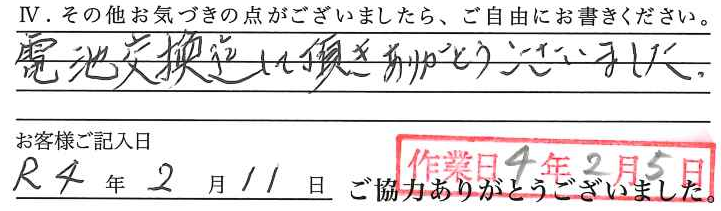 Ⅳ．その他お気づきの点がございましたら、ご自由にお書きください。
電池交換迄して頂きありがとうございました。
お客様ご記入日
R4年2月11日
作業日4年2月5日
ご協力ありがとうございました。